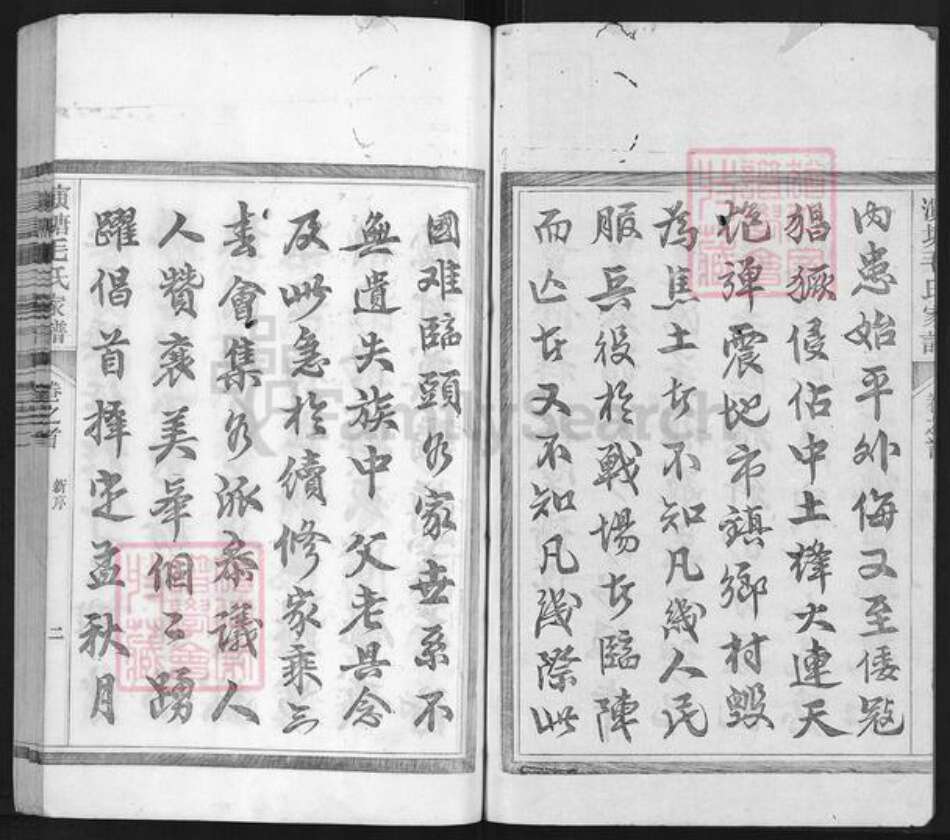 內患始平外侮又至倭寇
猖獗侵佔中土烽火連天
炮彈震地市鎮鄉村毀
為焦土者不知凡幾人民
服兵役於戰場者臨陣
而亡者又不知凡幾際此
國难臨頭各家世系不
無遺失族中父老具念
及此急於續修家乘云
春會集各派叅議人
人贊襄美舉個々踴
躍倡首擇定孟秋月
毛氏家譜
卷之首
新序
二
FamilySearch